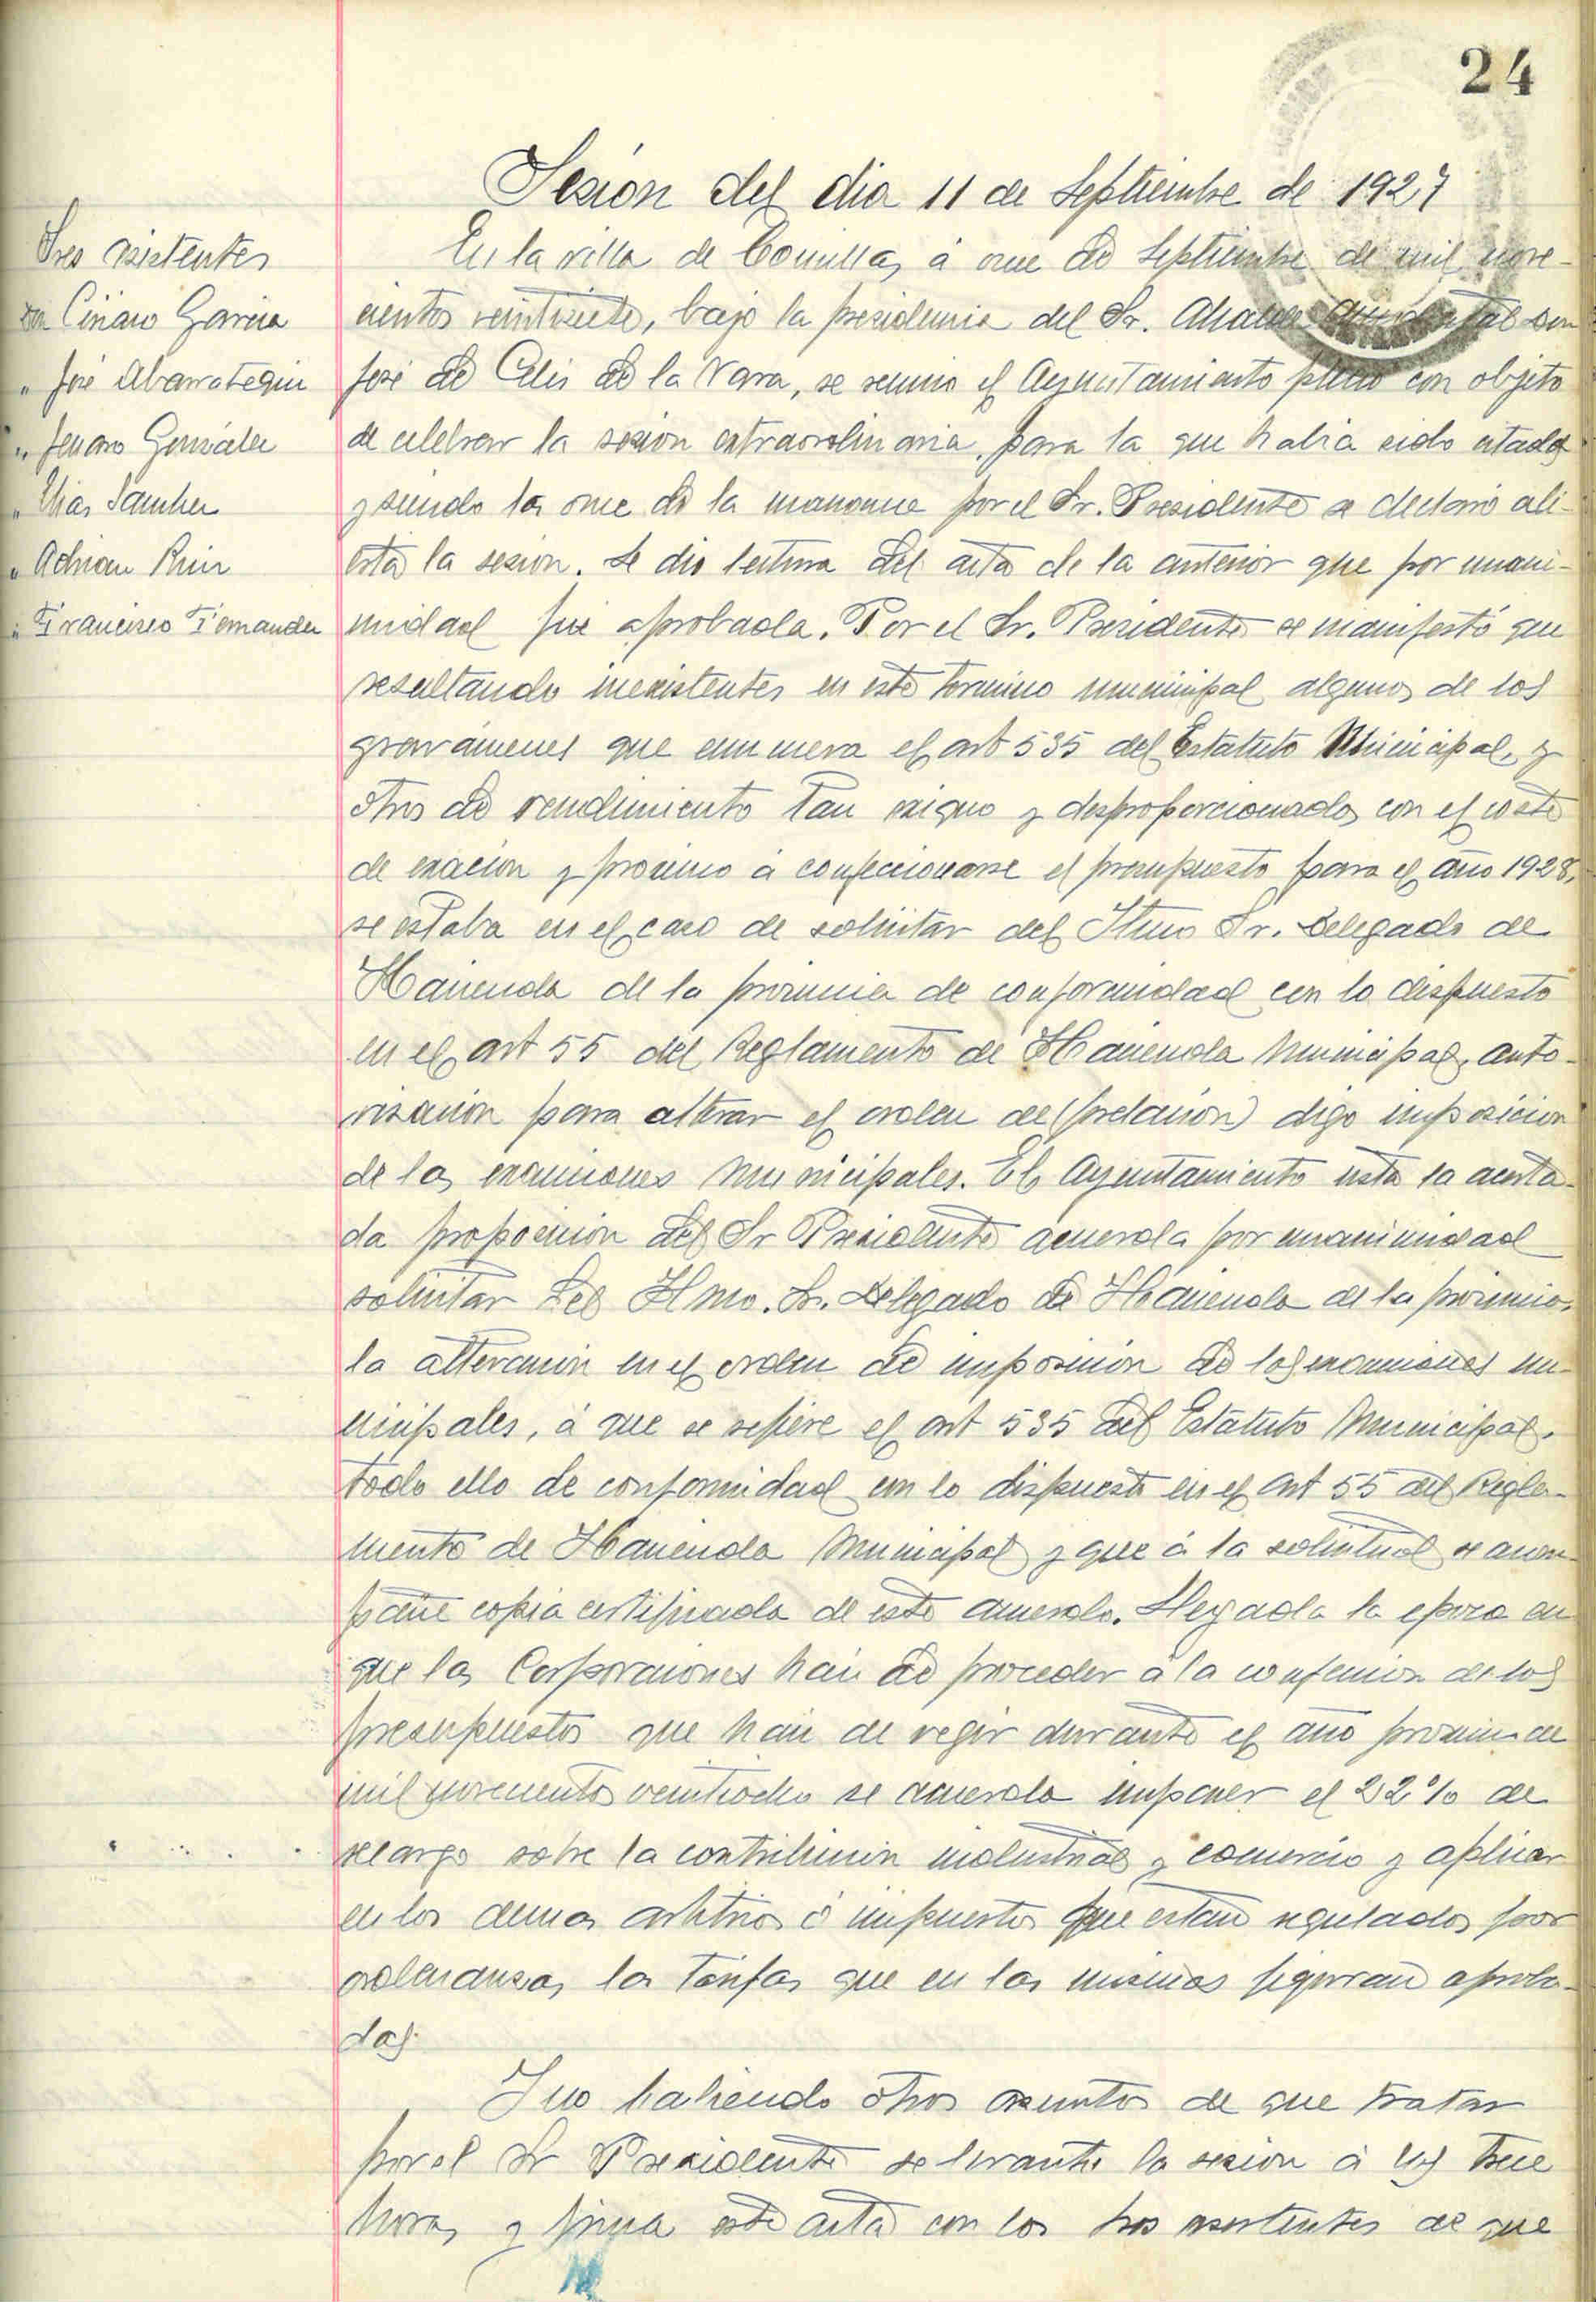 24
Sesión del dia 11 de Septiembre de 1927
Sres asistentes
Don Ciriaco Garcia
" José Abarrategui
" Jenaro González
" Elias Sanchez
" Adrian Ruiz
" Francisco Fernandez
En la villa de Comillas, á once de Septiembre de mil nove-
cientos veintisiete, bajo la presidencia del Sr. Alcalde accidental don
José de Celis de la Vara, se reunio el Ayuntamiento pleno con objeto
de celebrar la sesión extraordinaria, para la que habia sido citado
y siendo las once de la mañana por el Sr. Presidente se declaró abi-
erta la sesion. Se dio lectura del acta de la anterior que por unani-
midad fué aprobada. Por el Sr. Presidente se manifestó que
resultando inexistentes en este termino municipal algunos de los
gravámenes que enumera el art 535 del Estatuto Municipal, y
otros de rendimiento tan exiguo y desproporcionados con el coste
de exacion y proximo á confeccionarse el presupuesto para el año 1928,
se estaba en el caso de solicitar del Iltmo Sr. Delegado de
Hacienda de la provincia de conformidad con lo dispuesto
en el art 55 del Reglamento de Hacienda Municipal, auto-
rización para alterar el orden de (prelación) digo imposicion
de las exacciones Municipales. El Ayuntamiento vista la acerta-
da proposición del Sr Presidente acuerda por unanimidad
solicitar del Iltmo. Sr. Delegado de Hacienda de la provincia,
la alteración en el orden de imposición de las exacciones mu-
nicipales, á que se refiere el art 535 del Estatuto Municipal.
todo ello de conformidad con lo dispuesto en el art 55 del Regla-
mento de Hacienda Municipal y que á la solicitud se acom-
pañe copia certificada de este acuerdo. Llegada la epoca en
que las Corporaciones han de proceder á la confeccion de los
presupuestos que han de regir durante el año proximo de
mil novecientos veintiocho se acuerda imponer el 22% de
recargo sobre la contribución industrial y comercio y aplicar
en los demas arbitrios ó impuestos que estan regulados por
ordenanzas, las tarifas que en las mismas figuran aproba-
das.
Y no habiendo otros asuntos de que tratar
por el Sr Presidente se levanto la sesion á las trece
horas, y firma este acta con los Sres asistentes de que